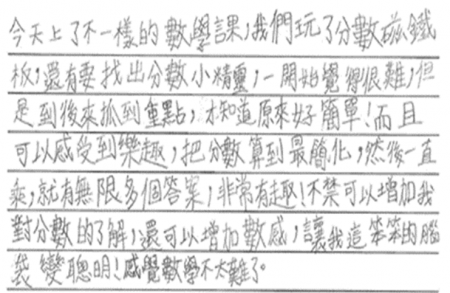 今天上了不一樣的數學課，我們玩了分數磁鐵
板，還有要找出分數小精靈，一開始覺得很難，但
是到後來抓到重點，才知道原來好簡單！而且
可以感受到樂趣，把分數算到最簡化，然後一直
乘，就有無限多個答案，非常有趣！不禁可以增加我
對分數的了解，還可以增加數感，讓我這笨笨的腦
袋變聰明！感覺數學不太難了。